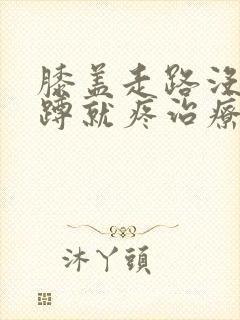 膝盖走路没
蹲就疼治療
沐丫頭